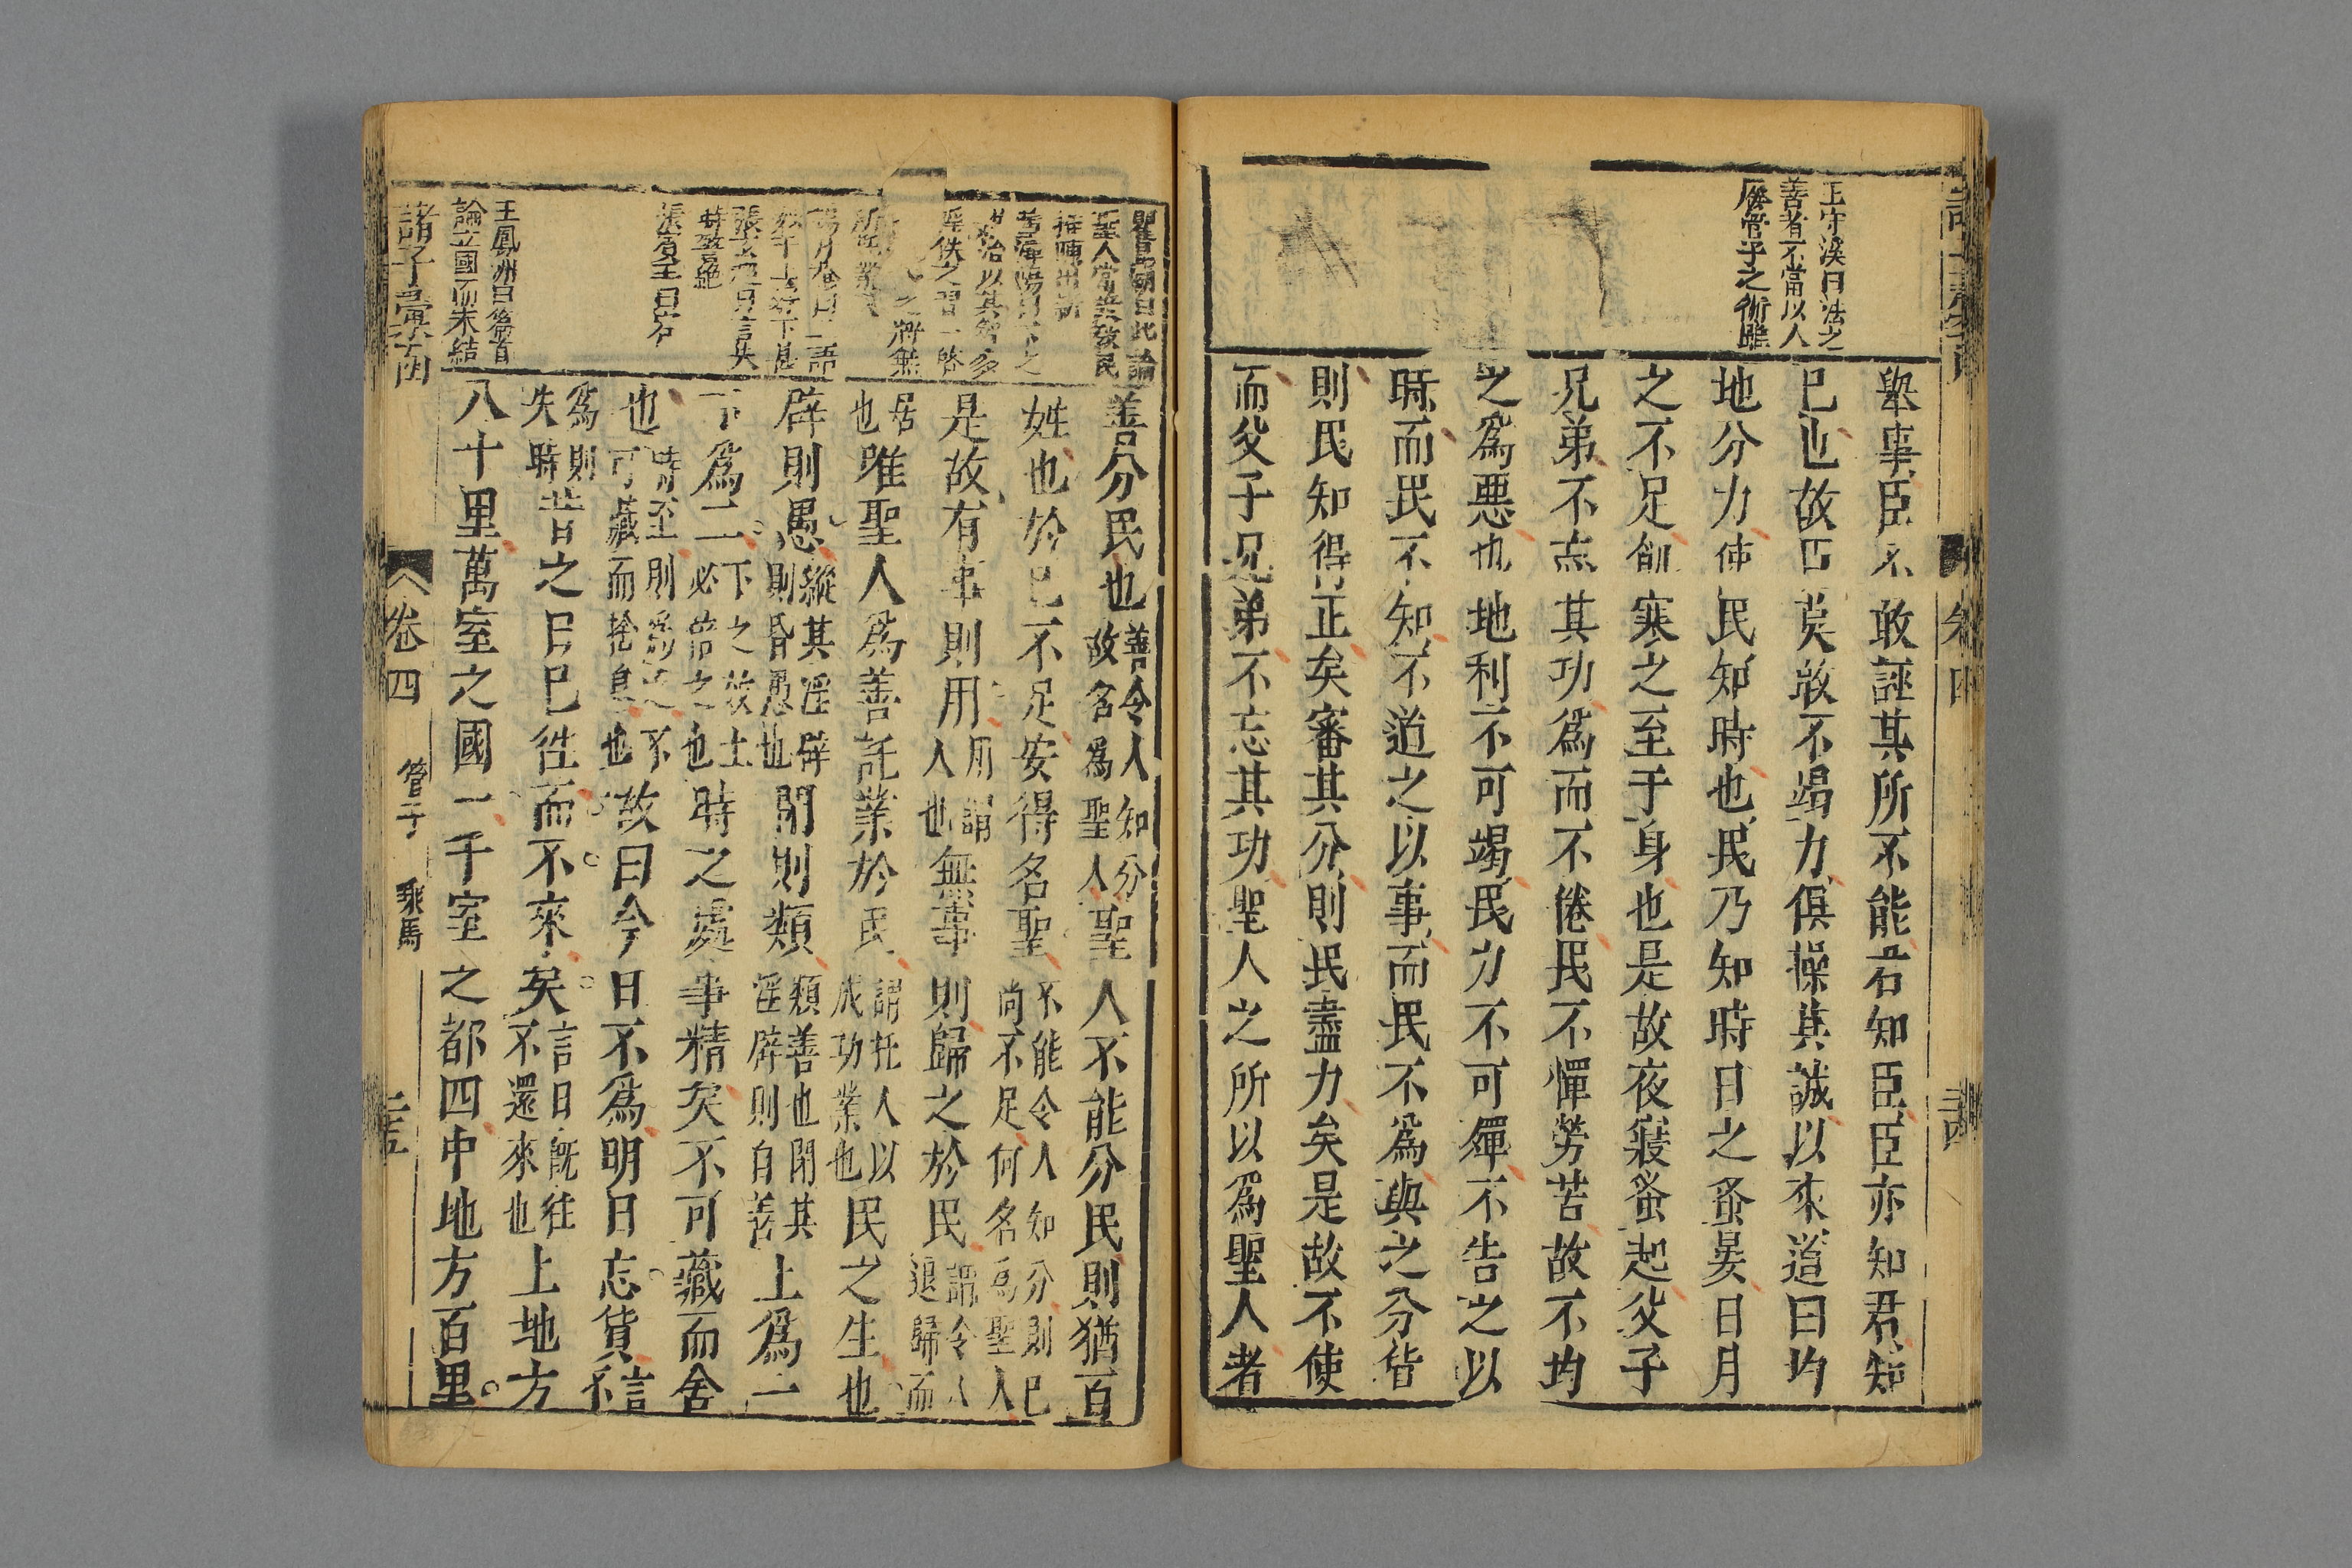 王守溪曰法之
善者不當以人
廢管子之術雖
舉事臣不敢誣其所不能君知臣臣亦知君知
已也故臣莫敢不竭力俱操其誠以來道曰均
地分力使民知時也民乃知時日之蚤晏日月
之不足飢寒之至于身也是故夜寢蚤起父子
兄弟不忘其功爲而不倦民不憚勞苦故不均
之爲惡也地利不可竭民力不可殫不告之以
時而民不知不道之以事而民不爲與之分貨
則民知得正矣審其分則民盡力矣是故不使
而父子兄弟不忘其功聖人之所以爲聖人者
善分民也善令人知分故名爲聖人聖人不能分民則猶百
姓也於已不足安得名聖不能令人知分則已尚不足何名爲聖人
是故有事則用用謂人也無事則歸之於民謂令人退歸而
居也唯聖人爲善託業於民謂托人以成功業也民之生也
辟則愚縱其淫辟則昏愚也閉則類類善也閉其淫辟則自善上爲一
下爲二下之故上必倍之也時之處事精矣不可藏而舍
也時至則爲之不可藏而捨息也故曰今日不爲明日忘貨言不
爲則失時昔之日已徃而不來矣言日既往不還來也上地方
八十里萬室之國一千室之都四中地方百里
聖人常並教民
淫佚之習一啓
張賓王曰宕
王鳳洲曰篇首
論立國而未結
諸子彙函
卷四
管子
乘馬